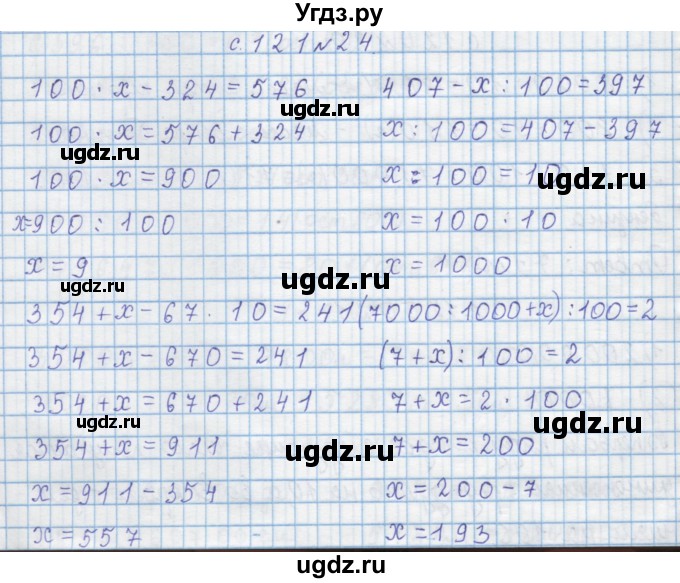 Угдз.ру
с. 121 №24.
100 · х − 324 = 576
100 · х = 576 + 324
100 · х = 900
х=900 : 100
х = 9
407 − х : 100 = 397
х : 100 = 407 − 397
х : 100 = 10
х = 100 · 10
х = 1000
354 + х − 67 · 10 = 241
354 + х − 670 = 241
354 + х = 670 + 241
354 + х = 911
х = 911 − 354
х = 557
(7000 : 1000 + х) : 100 = 2
(7 + х) : 100 = 2
7 + х = 2 · 100
7 + х = 200
х = 200 − 7
х = 193
ugdz.ru
ugdz.ru
ugdz.ru
ugdz.ru
ugdz.ru
ugdz.ru
ugdz.ru
ugdz.ru
ugdz.ru
ugdz.ru
ugdz.ru
ugdz.ru
ugdz.ru